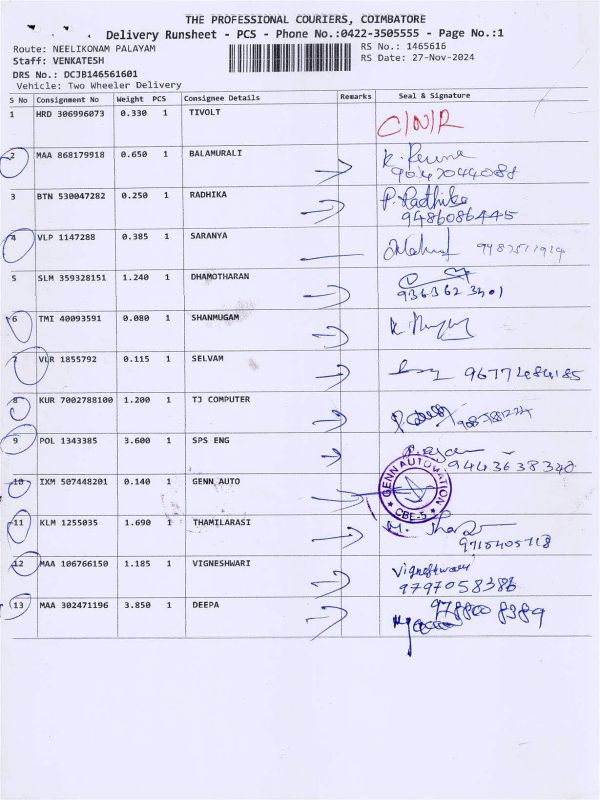 THE PROFESSIONAL COURIERS, COIMBATORE
Delivery Runsheet - PCS - Phone No.:0422-3505555 - Page No.:1
Route: NEELIKONAM PALAYAM RS No.: 1465616
Staff: VENKATESH RS Date: 27-Nov-2024
DRS No.: DCJB146561601
Vehicle: Two Wheeler Delivery
S No Consignment No Weight PCS Consignee Details Remarks Seal & Signature
1 HRD 306996073 0.330 1 TIVOLT C/N/R
2 MAA 868179918 0.650 1 BALAMURALI
9047044088
3 BTN 530047282 0.250 1 RADHIKA P. Radhika
9486086445
4 VLP 1147288 0.385 1 SARANYA
5 SLM 359328151 1.240 1 DHAMOTHARAN
6 TMI 40093591 0.080 1 SHANMUGAM
7 VLR 1855792 0.115 1 SELVAM
8 KUR 7002788100 1.200 1 TJ COMPUTER
9 POL 1343385 3.600 1 SPS ENG
9443638340
10 IXM 507448201 0.140 1 GENN AUTO GENN AUTOMATION
CBE-5
11 KLM 1255035 1.690 1 THAMILARASI
12 MAA 106766150 1.185 1 VIGNESHWARI Vigneshwari
9797058386
13 MAA 302471196 3.850 1 DEEPA